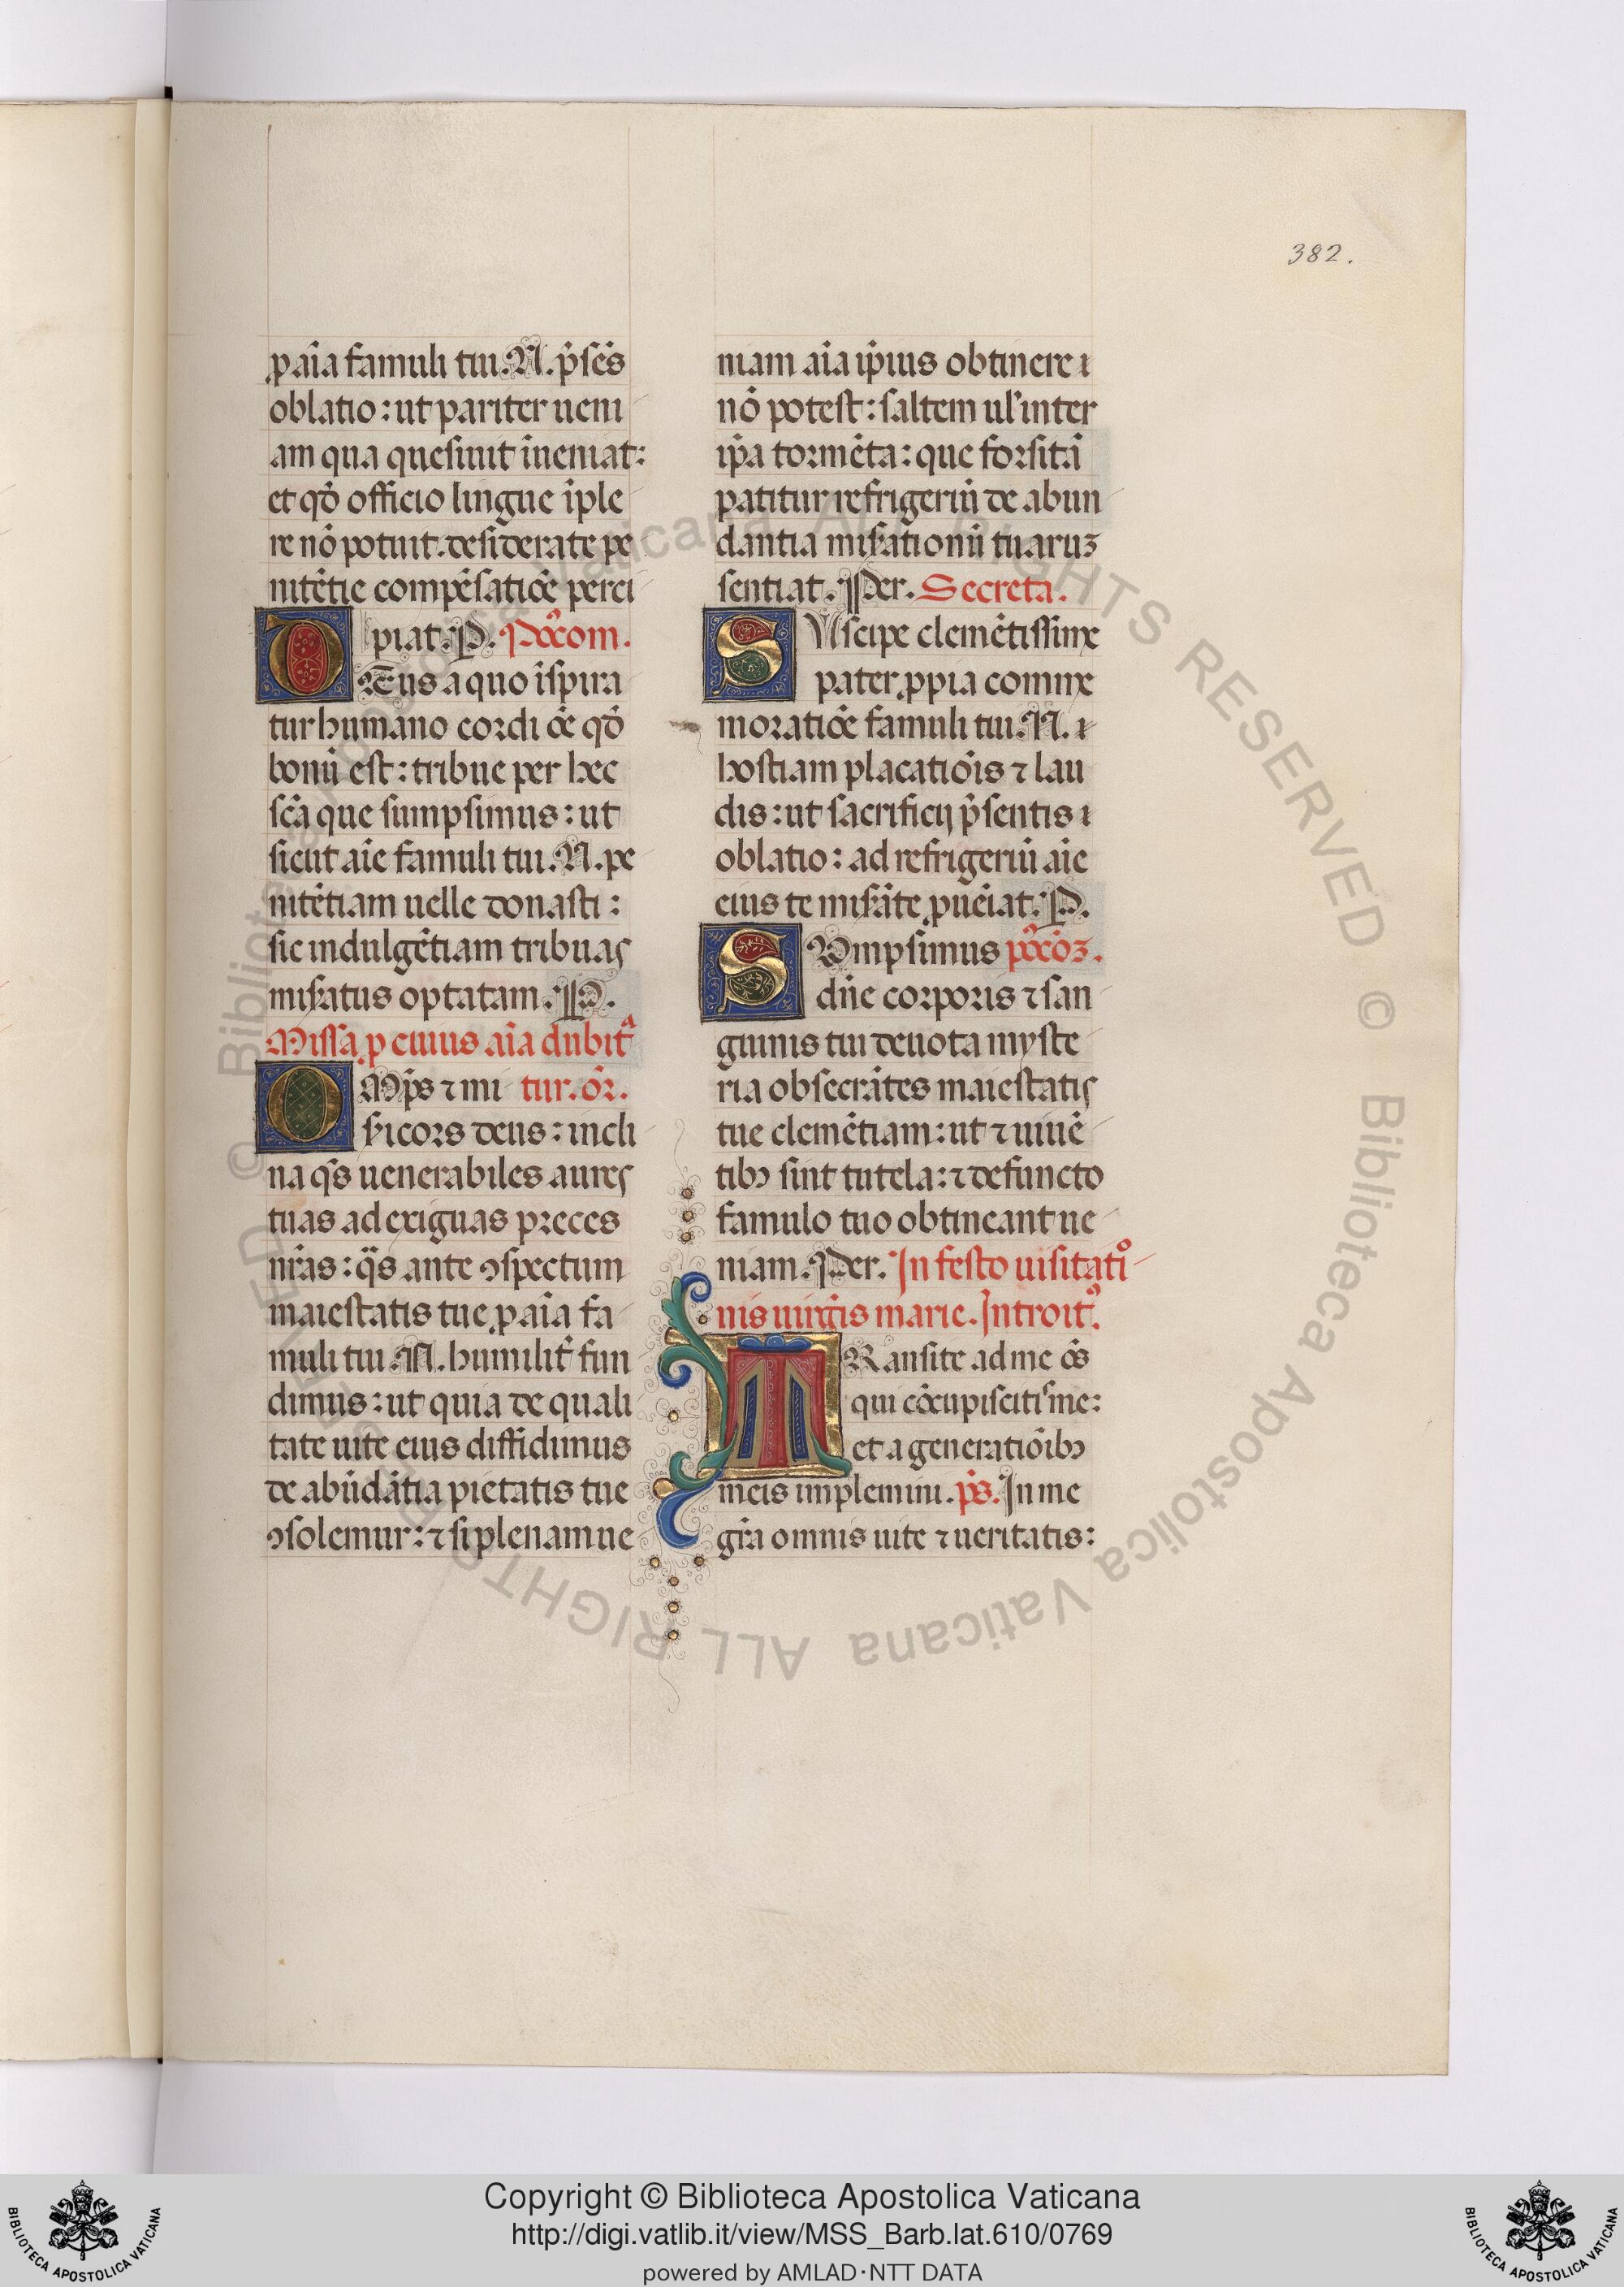 382.
ꝓ aīa famuli tui. N. p̄sēs
oblatio: ut pariter ueni
am qua quesiuit īueniat:
et qđ officio lingue īple
re nō potuit. desiderate pe
nitētie compēsatiōe perci
piat. P. Pōcom.
DEus a quo īspira
tur humano cordi ōe qđ
bonū est: tribue per hec
scā que sumpsimus: ut
sicut aīe famuli tui. N. pe
nitētiam uelle donasti:
sic indulgētiam tribuas
mis̄atus optatam. P.
Missa ꝓ cuius aīa dubitā
OMp̄s ⁊ mi tur. ōr.
s̄icors deus: incli
na q̄s uenerabiles aures
tuas ad exiguas preces
nr̄as: q̄s ante ꝯspectum
maiestatis tue ꝓ aīa fa
muli tui. N. humilit̄ fun
dimus: ut quia de quali
tate uite eius diffidimus
de abūdātia pietatis tue
ꝯsolemur: ⁊ si plenam ue
niam aīa ip̄ius obtinere
nō potest: saltem ul' inter
ip̄a tormēta: que forsitā
patitur refrigeriū de abun
dantia mis̄ationū tuaruꝫ
sentiat. Per. Secreta.
SUscipe clemētissime
pater ꝓ pia comme
moratiōe famuli tui. N.
hostiam placatiōis ⁊ lau
dis: ut sacrificij p̄sentis
oblatio: ad refrigeriū aīe
eius te mis̄āte ꝓueīat. P.
SUmpsimus pōcōꝫ.
dn̄e corporis ⁊ san
guinis tui deuota myste
ria obsecrātes maiestatis
tue clemētiam: ut ⁊ uiuē
tibꝫ sint tutela: ⁊ defuncto
famulo tuo obtineant ue
niam. Per. In festo uisitatiō
nis uirgīs marie. Introitꝰ.
TRansite ad me ōs
qui cōcupiscitis me:
et a generatiōibꝫ
meis implemini. p̄s. In me
gr̄a omnis uite ⁊ ueritatis:
© Biblioteca Apostolica Vaticana ALL RIGHTS RESERVED © Biblioteca Apostolica Vaticana ALL RIGHTS RESERVED
Copyright © Biblioteca Apostolica Vaticana
http://digi.vatlib.it/view/MSS_Barb.lat.610/0769
powered by AMLAD·NTT DATA
BIBLIOTECA APOSTOLICA VATICANA
BIBLIOTECA APOSTOLICA VATICANA